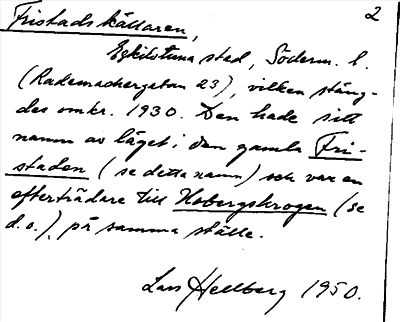 2
Fristadskällaren,
Eskilstuna stad, Söderm. l.
(Rademachergatan 23), vilken stäng-
des omkr. 1930. Den hade sitt
namn av läget i den gamla Fri-
staden (se detta namn) och var en
efterträdare till Hobergskrogen (se
d.o.), på samma ställe.
Lars Hellberg 1950.